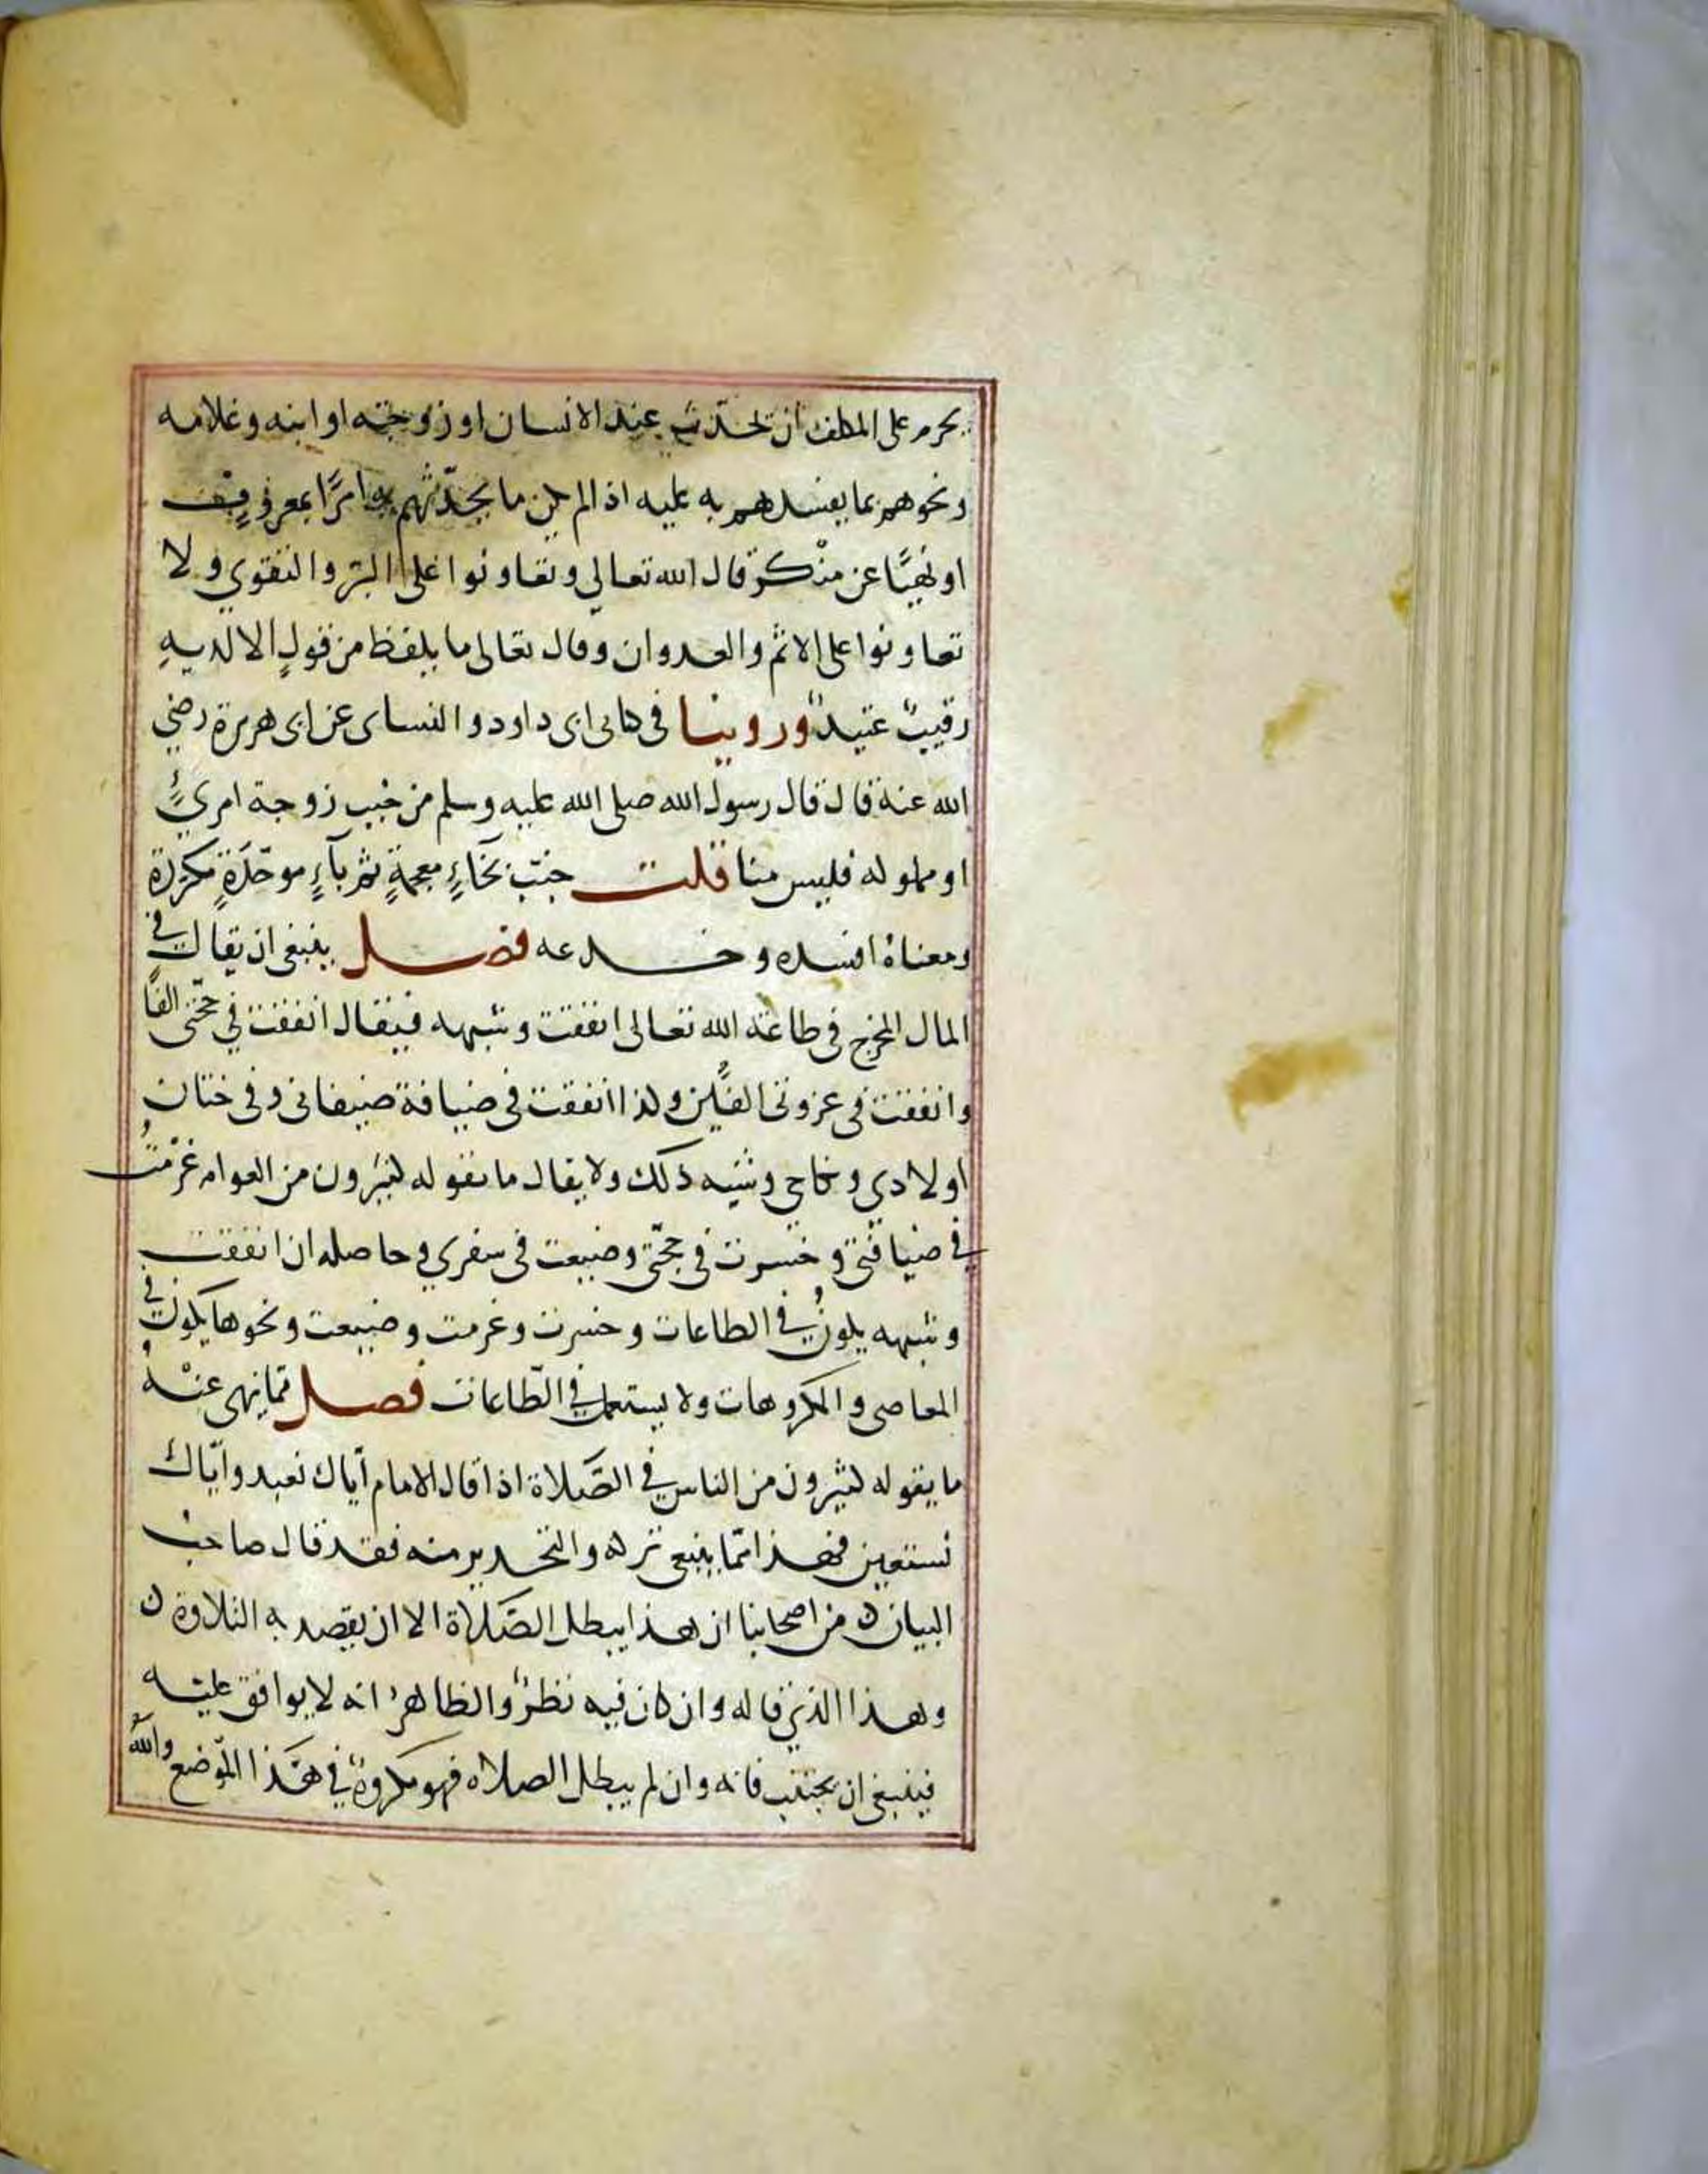 يحرم على المكلف ان يحدث عبد الانسان او زوجته او ابنه وغلامه
ونحوهم بما يفسدهم به عليه اذا لم يكن ما يحدّثهم به امرًا بمعروفٍ
او نهيًا عن منكر قال الله تعالى وتعاونوا على البرّ والتقوي ولا
تعاونوا على الاثم والعدوان وقال تعالى ما يلفظ من قولٍ الا لديهِ
رقيبٌ عتيدٌ وروينا في كتابى ابى داود والنساى عن ابى هريرة رضي
الله عنه قال قال رسول الله صلى الله عليه وسلم من خبب زوجة امرئٍ
او مملوكه فليس منا قلت خبّب بخآءٍ معجمةٍ ثم بآءٍ موحّدَةٍ مكررة
ومعناهُ افسده وخدعه فصل ينبغى ان يقال في
المال المخرج فى طاعة الله تعالى انفقت وشبهه فيقال انفقت في حجّتى الفًا
وانفقت فى غزوتى الفَين وكذا انفقت فى ضيافة ضيفانى وفى ختان
اولادي ونكاحي وشبه ذلك ولا يقال ما يقوله كثيرون من العوام غرمْتُ
في ضيافتى وخسرت فى حجّتى وضيعت فى سفري وحاصله ان انفقت
وشبهه يكونُ في الطاعات وخسرت وغرمت وضيعت ونحوها يكون في
المعاصى والمكروهات ولا يستعمل في الطّاعات فصل ممّا ينهى عنْهُ
ما يقوله كثيرون من الناس في الصَّلاة اذا قال الامام ايّاك نعبد وايّاك
نستعين فهذا ممّا ينبغى تركه والتحذير منه فقد قال صاحب
البيان من اصحابنا ان هذا يبطل الصَّلاة الا ان يقصد به التلاوة
وهذا الذي قاله وان كان فيه نظرٌ والظاهرُ انه لا يوافق عليْه
فينبغى ان يجتنب فانه وان لم يبطل الصلاه فهو مكروهٌ في هَذا الموضع واللهُ